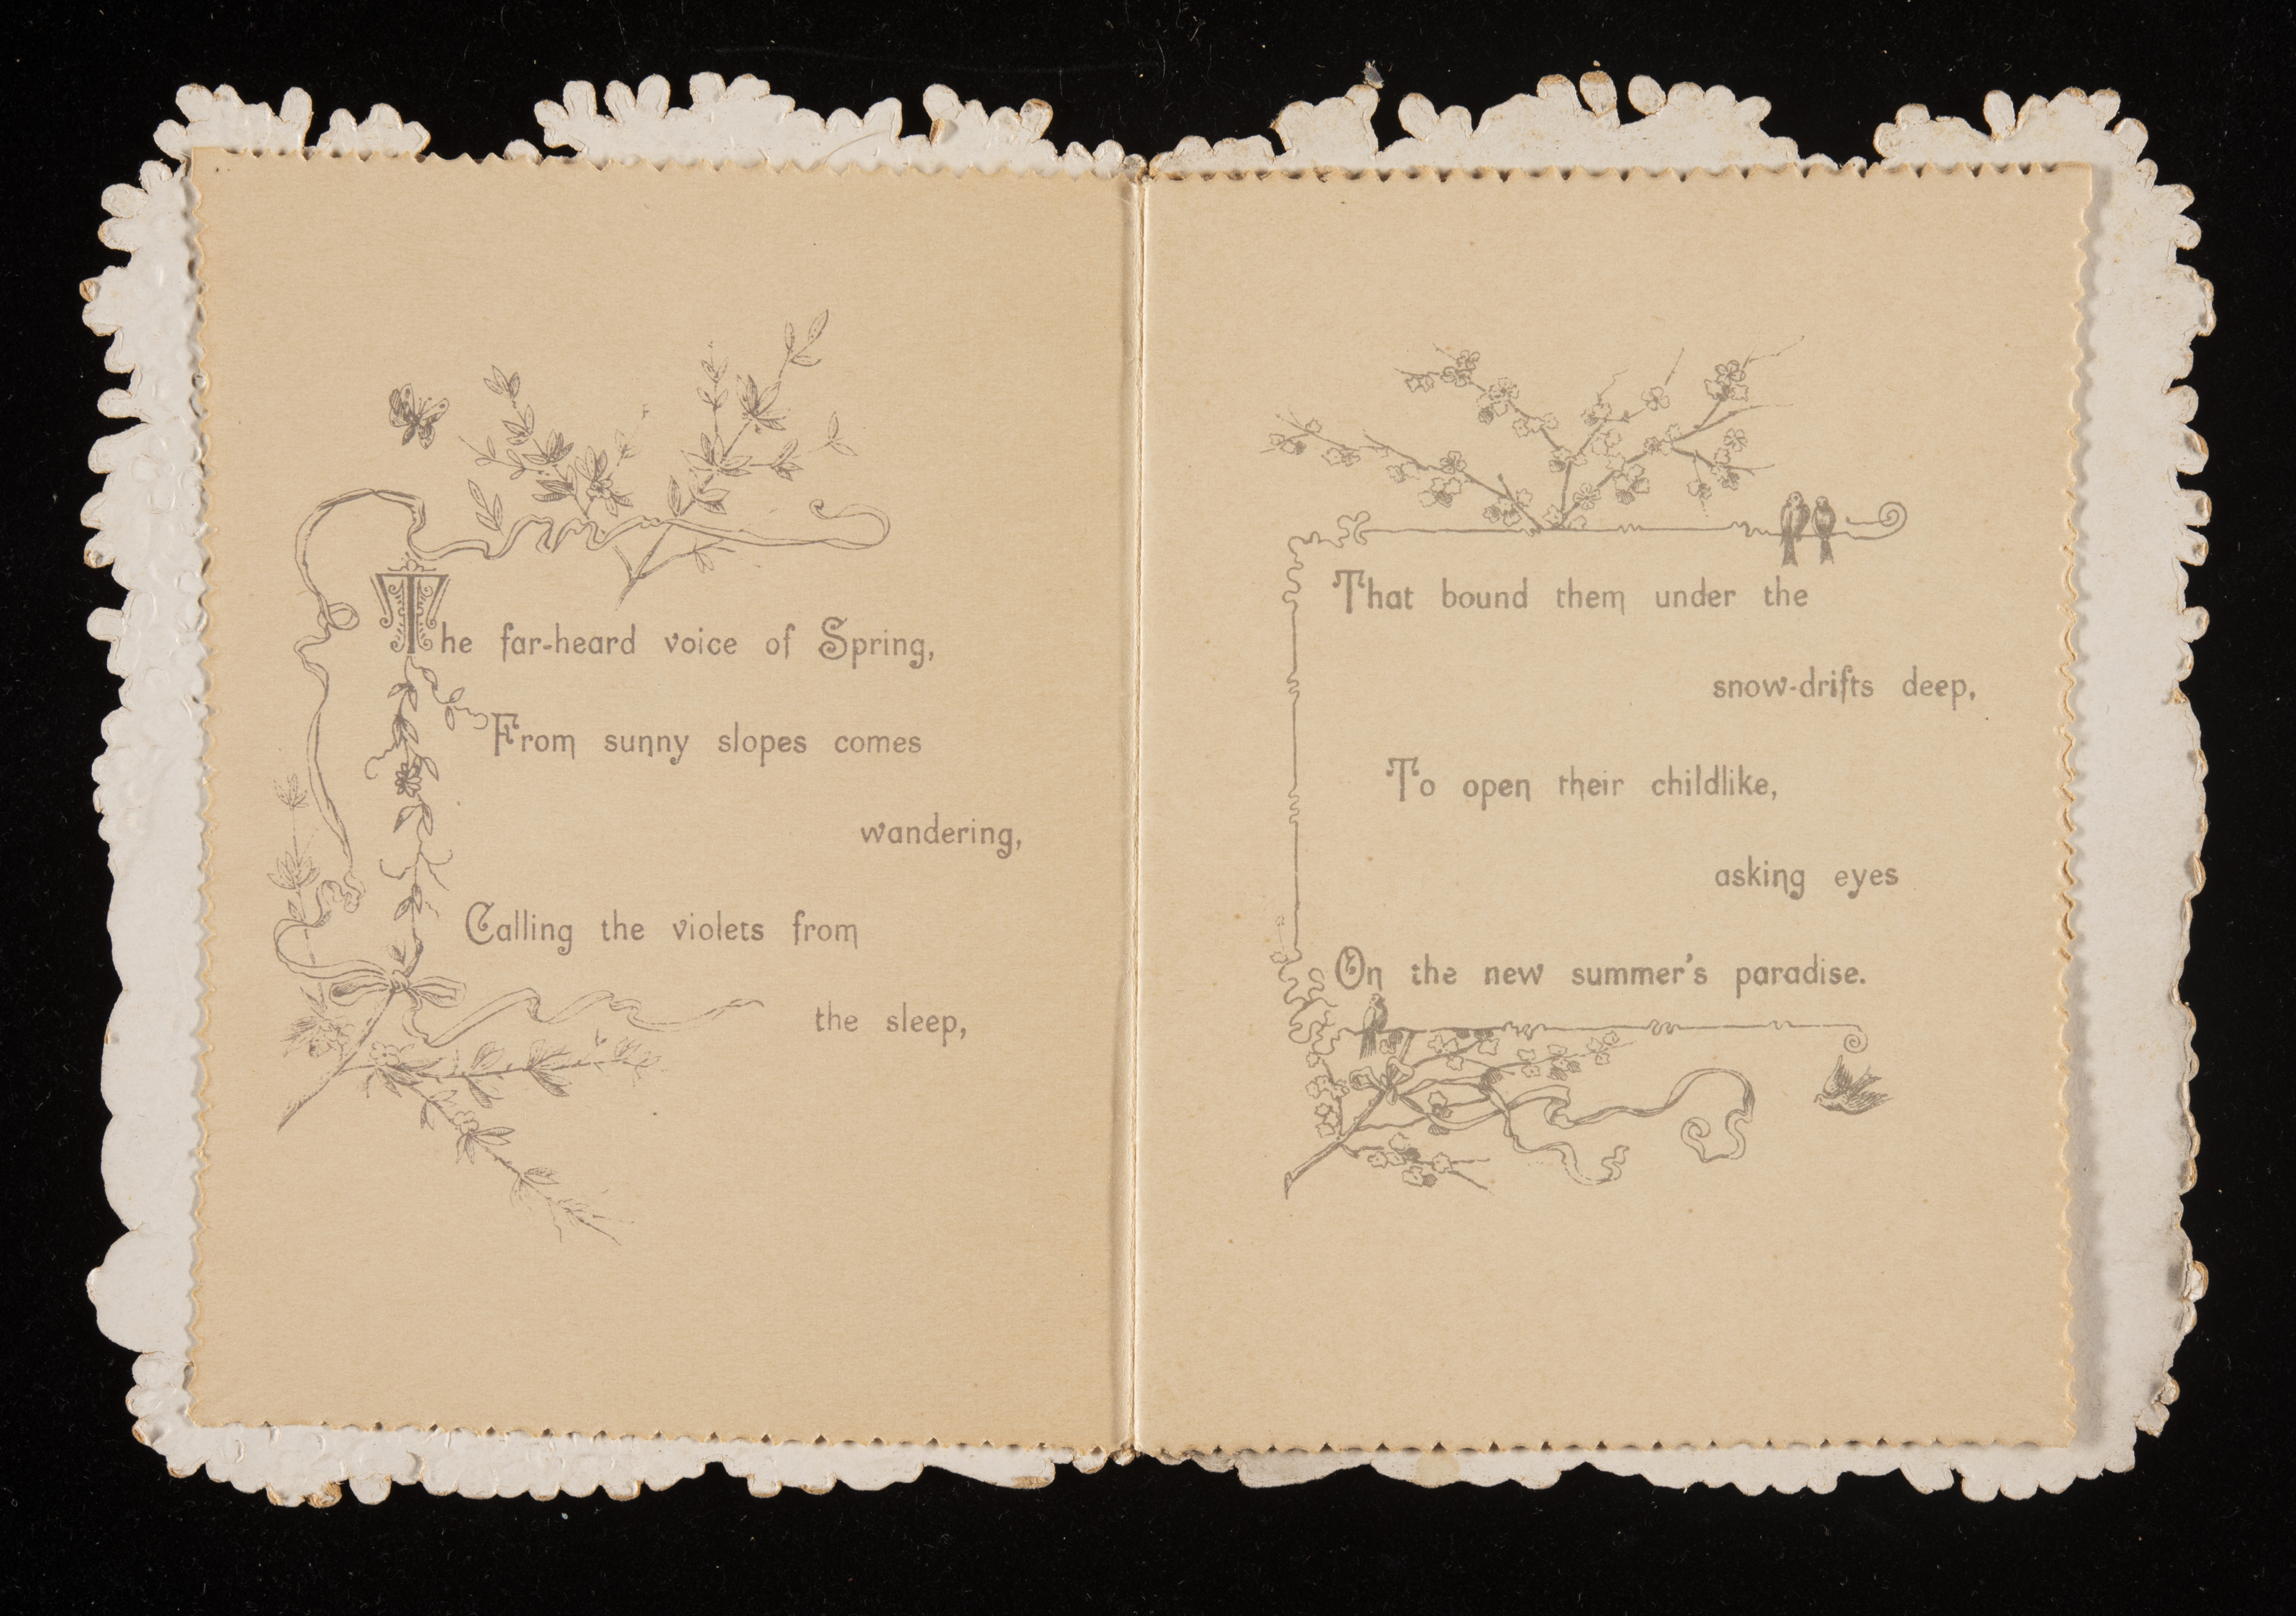 The far-heard voice of Spring,
From sunny slopes comes
wandering,
Calling the violets from
the sleep,
That bound them under the
snow-drifts deep,
To open their childlike,
asking eyes
On the new summer's paradise.